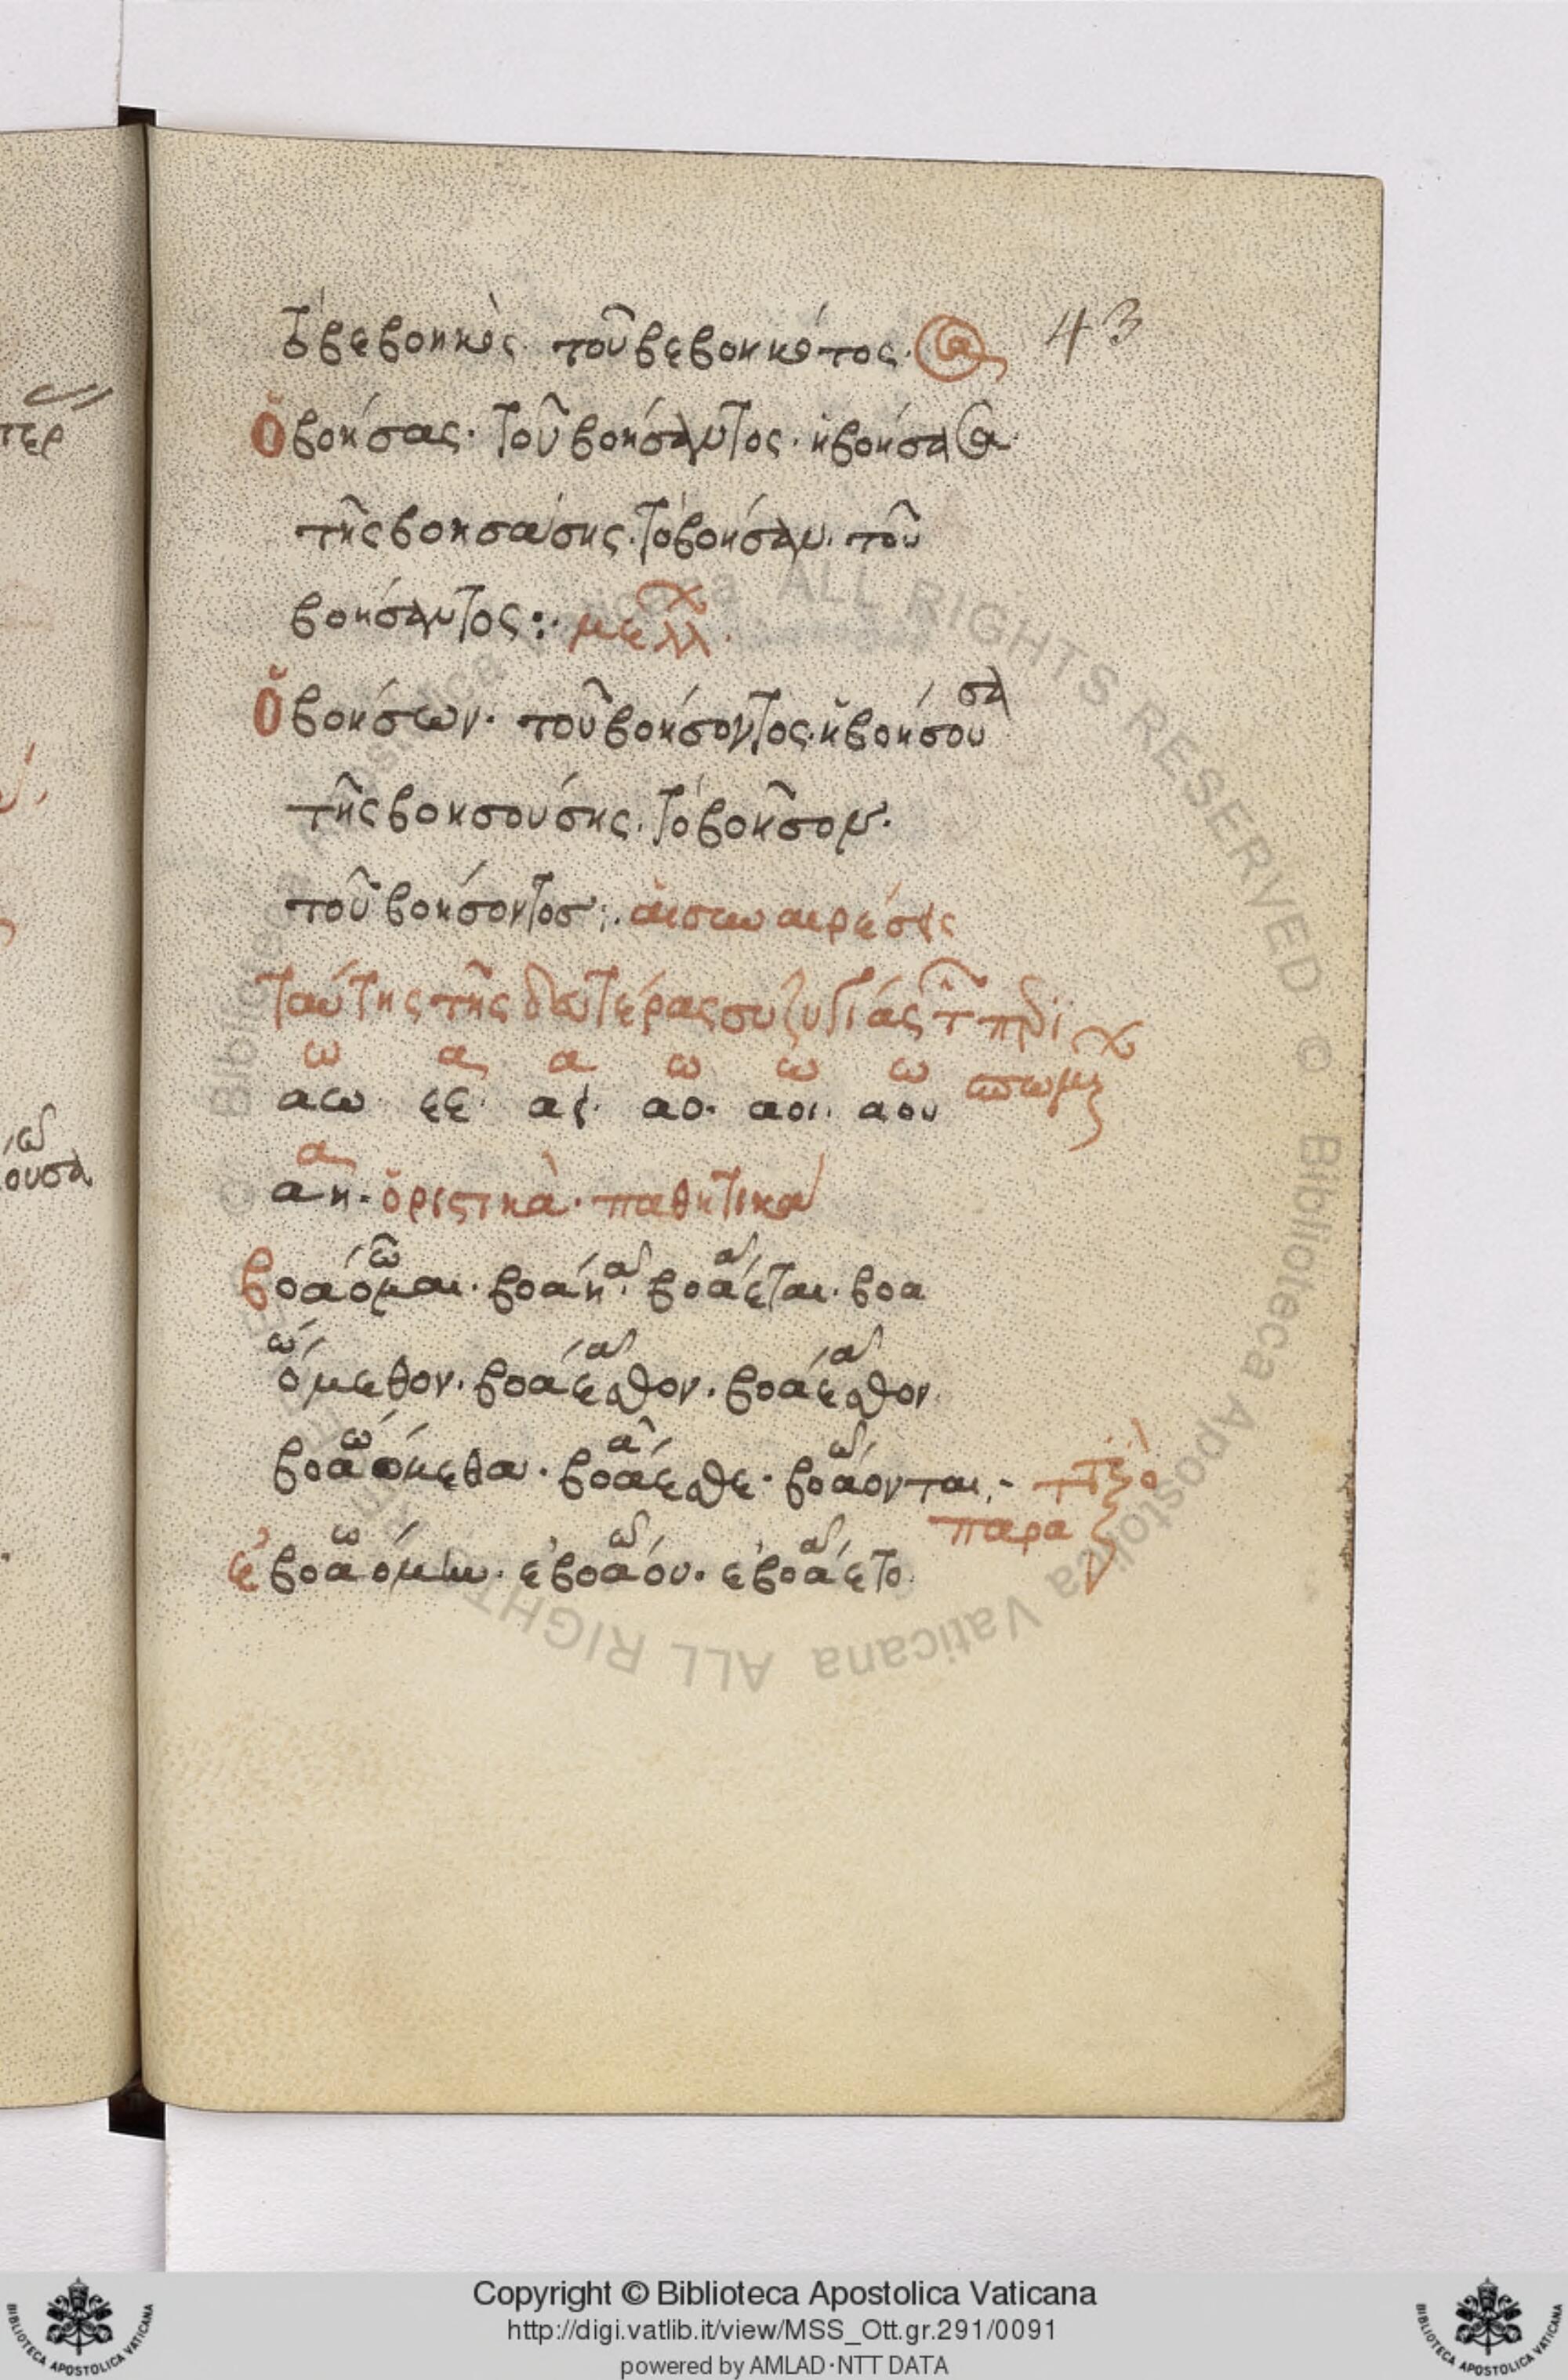 τὸ βεβοηκὸς. τοῦ βεβοηκότος.
43
ὁ βοήσας. τοῦ βοήσαντος. ἡ βοήσασα
τῆς βοησάσης. τὸ βοήσαν. τοῦ
βοήσαντος: μελλ
ὁ βοήσων. τοῦ βοήσοντος. ἡ βοήσουσα
τῆς βοησούσης. τὸ βοῆσον.
τοῦ βοήσοντος: αἱ συναιρέσεις
ταύτης τῆς δευτέρας συζυγίας
ω α α ω ω ω
αω εε αει αο. αοι. αου
α
αη. ὁριστικὰ. παθητικά
ῶ α α
βοάομαι. βοάη. βοάεται. βοα
ώ α α
όμεθον. βοάεσθον. βοάεσθον
ω α ω
βοαόμεθα. βοάεσθε. βοάονται
παρα
ω ω α
ἐβοαόμην. ἐβοάου. ἐβοάετο
περ
ω
ουσα
© Biblioteca Apostolica Vaticana ALL RIGHTS RESERVED © Biblioteca Apostolica Vaticana ALL RIGHTS RESERVED
Copyright © Biblioteca Apostolica Vaticana
http://digi.vatlib.it/view/MSS_Ott.gr.291/0091
powered by AMLAD·NTT DATA
BIBLIOTECA APOSTOLICA VATICANA
BIBLIOTECA APOSTOLICA VATICANA